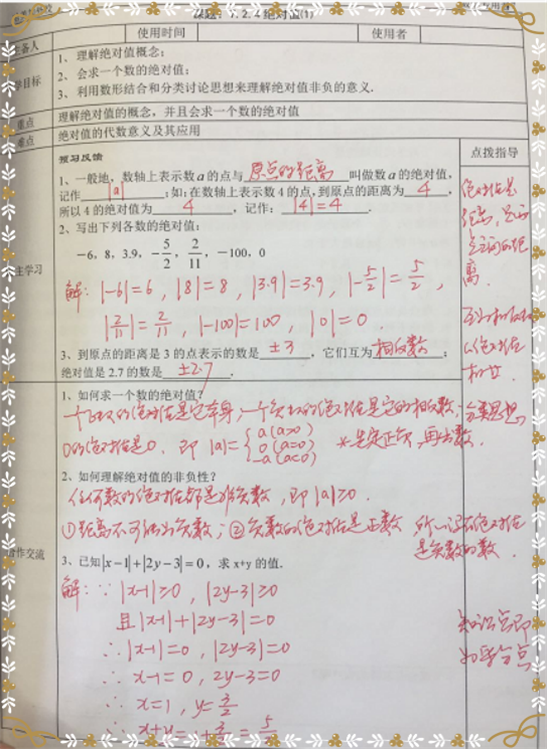 课题：1.2.4绝对值(1)
主备人 使用时间 使用者
学习目标
1、理解绝对值概念；
2、会求一个数的绝对值；
3、利用数形结合和分类讨论思想来理解绝对值非负的意义.
重点 理解绝对值的概念，并且会求一个数的绝对值
难点 绝对值的代数意义及其应用
预习反馈 点拨指导
1、一般地，数轴上表示数a的点与 原点的距离 叫做数a的绝对值，
记作 |a| ；如：在数轴上表示数4的点，到原点的距离为 4 ，
所以4的绝对值为 4 ，记作： |4|=4 .
绝对值是
距离，是两
点之间的距
离.
2、写出下列各数的绝对值：
-6, 8, 3.9, -5/2, 2/11, -100, 0
解：|-6|=6, |8|=8, |3.9|=3.9, |-5/2|=5/2,
|2/11|=2/11, |-100|=100, |0|=0.
3、到原点的距离是3的点表示的数是 ±3 ，它们互为 相反数 ；
绝对值是2.7的数是 ±2.7 .
互为相反数
的绝对值
相等.
1、如何求一个数的绝对值？
一个正数的绝对值是它本身，一个负数的绝对值是它的相反数，
0的绝对值是0. 即 |a|={a(a>0) 0(a=0) -a(a<0) *先定正负，再去数.
分类思想
2、如何理解绝对值的非负性？
任何数的绝对值都是非负数，即|a|≥0.
①距离不可能为负数；②负数的绝对值是正数 所以没有绝对值
是负数的数.
合作交流
3、已知|x-1|+|2y-3|=0，求x+y的值.
解：∵|x-1|≥0, |2y-3|≥0
且|x-1|+|2y-3|=0
∴|x-1|=0, |2y-3|=0
∴x-1=0, 2y-3=0
∴x=1, y=3/2
∴x+y=1+3/2=5/2
知识点即